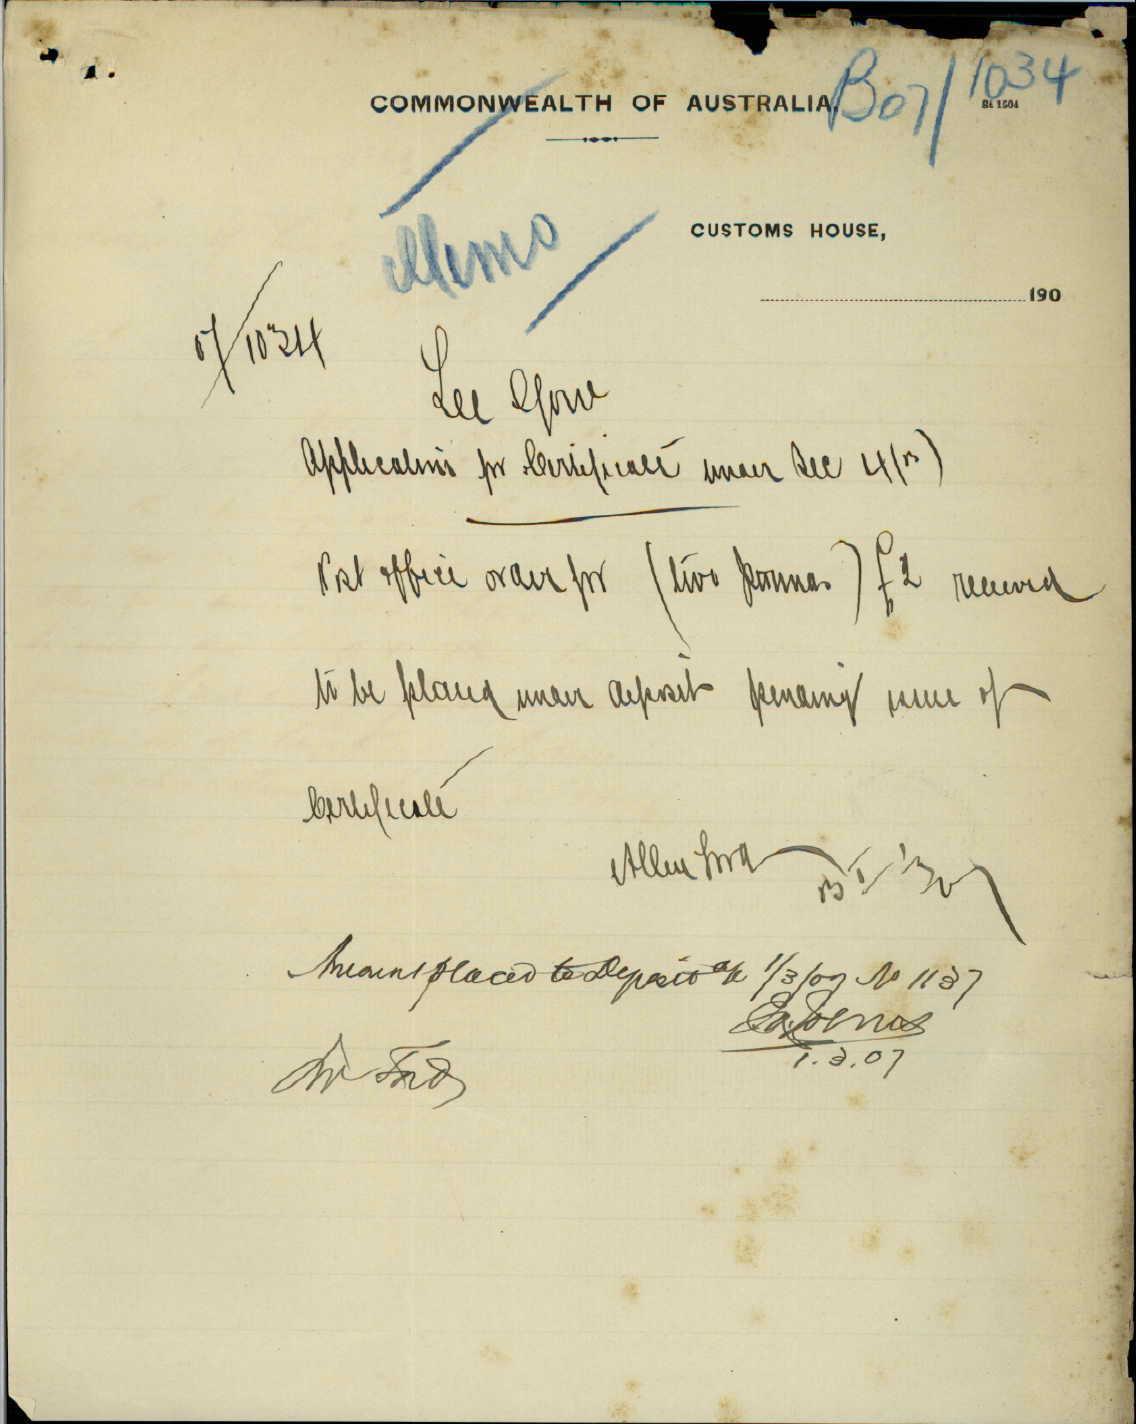 COMMONWEALTH OF AUSTRALIA.
B07/1034
Bt 1504
Memo
CUSTOMS HOUSE,
190
07/1034
Lee
Application for Certificate under Sec 4(B)
Post office order for (two pounds) £2 received
to be placed under deposit pending issue of
Certificate
Amount placed to Deposit a/c 1/3/07 No 1137
1.3.07
Mr Ford